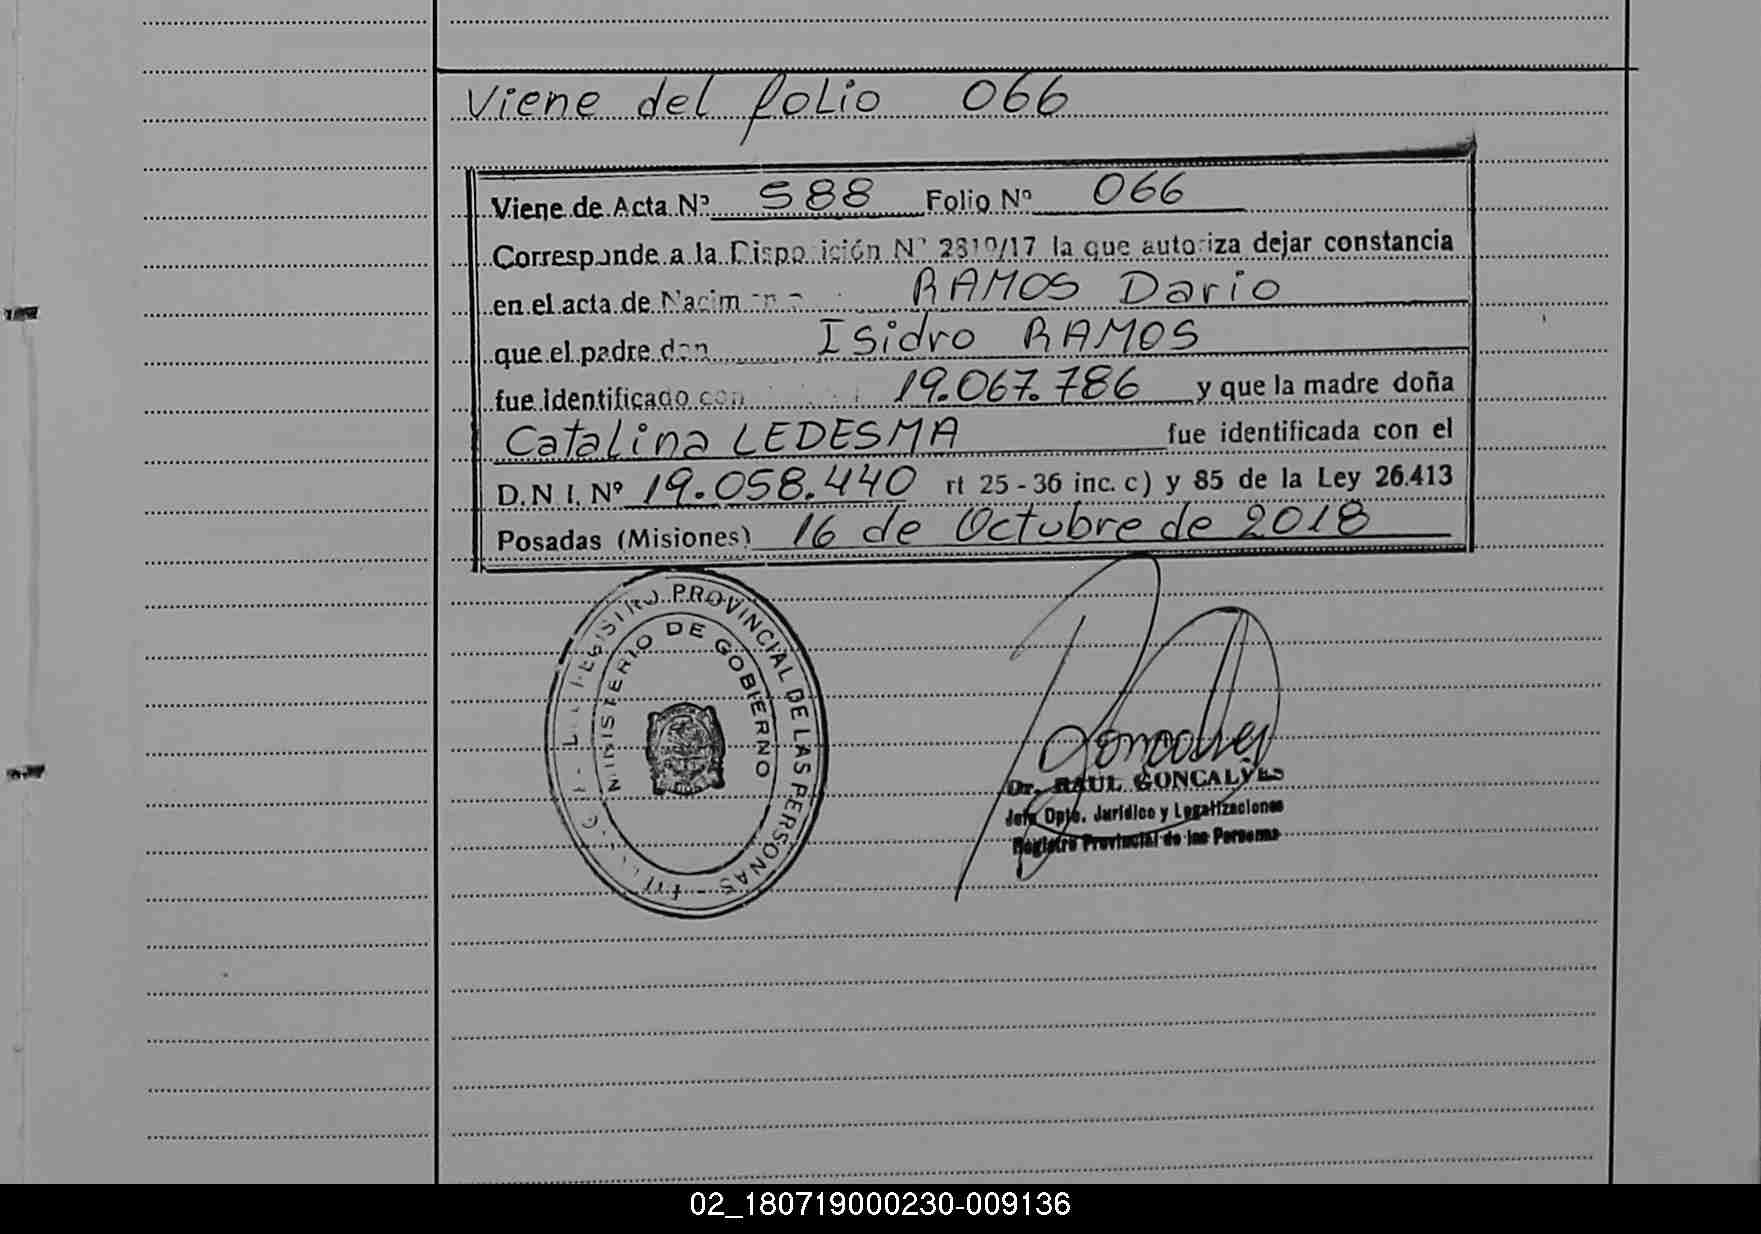 Viene del folio 066
Viene de Acta Nº 588 Folio Nº 066
Corresponde a la Disposición Nº 2310/17 la que autoriza dejar constancia
en el acta de RAMOS Dario
que el padre don Isidro RAMOS
fue identificado con 19.067.786 y que la madre doña
Catalina LEDESMA fue identificada con el
D.N.I. Nº 19.058.440 rt 25 - 36 inc. c) y 85 de la Ley 26.413
Posadas (Misiones) 16 de Octubre de 2018
REGISTRO PROVINCIAL DE LAS PERSONAS
MINISTERIO DE GOBIERNO
Dr. RAUL GONCALVES
Jefe Dpto. Jurídico y Legalizaciones
Registro Provincial de las Personas
02_180719000230-009136